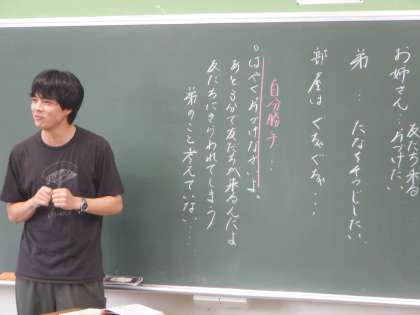 友だち来る
お姉さん…片づけたい
弟…たなそうじしたい
部屋はぐちゃぐちゃ・・・
自分勝手…
。はやく、片づけなさいよ。
あとるかで友だちが来るんだよ
友だちにきらわれてしまう
弟のこと考えていない…